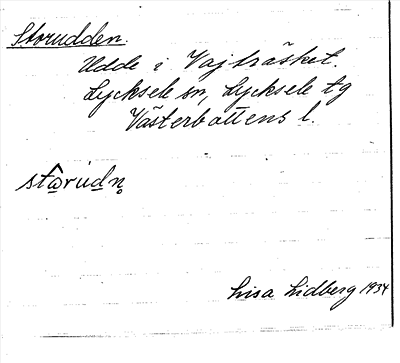 Storudden.
Udde i Vajträsket.
Lycksele sn, Lycksele tg
Västerbottens l.
stø̂rudn̥
Lisa Lidberg 1934